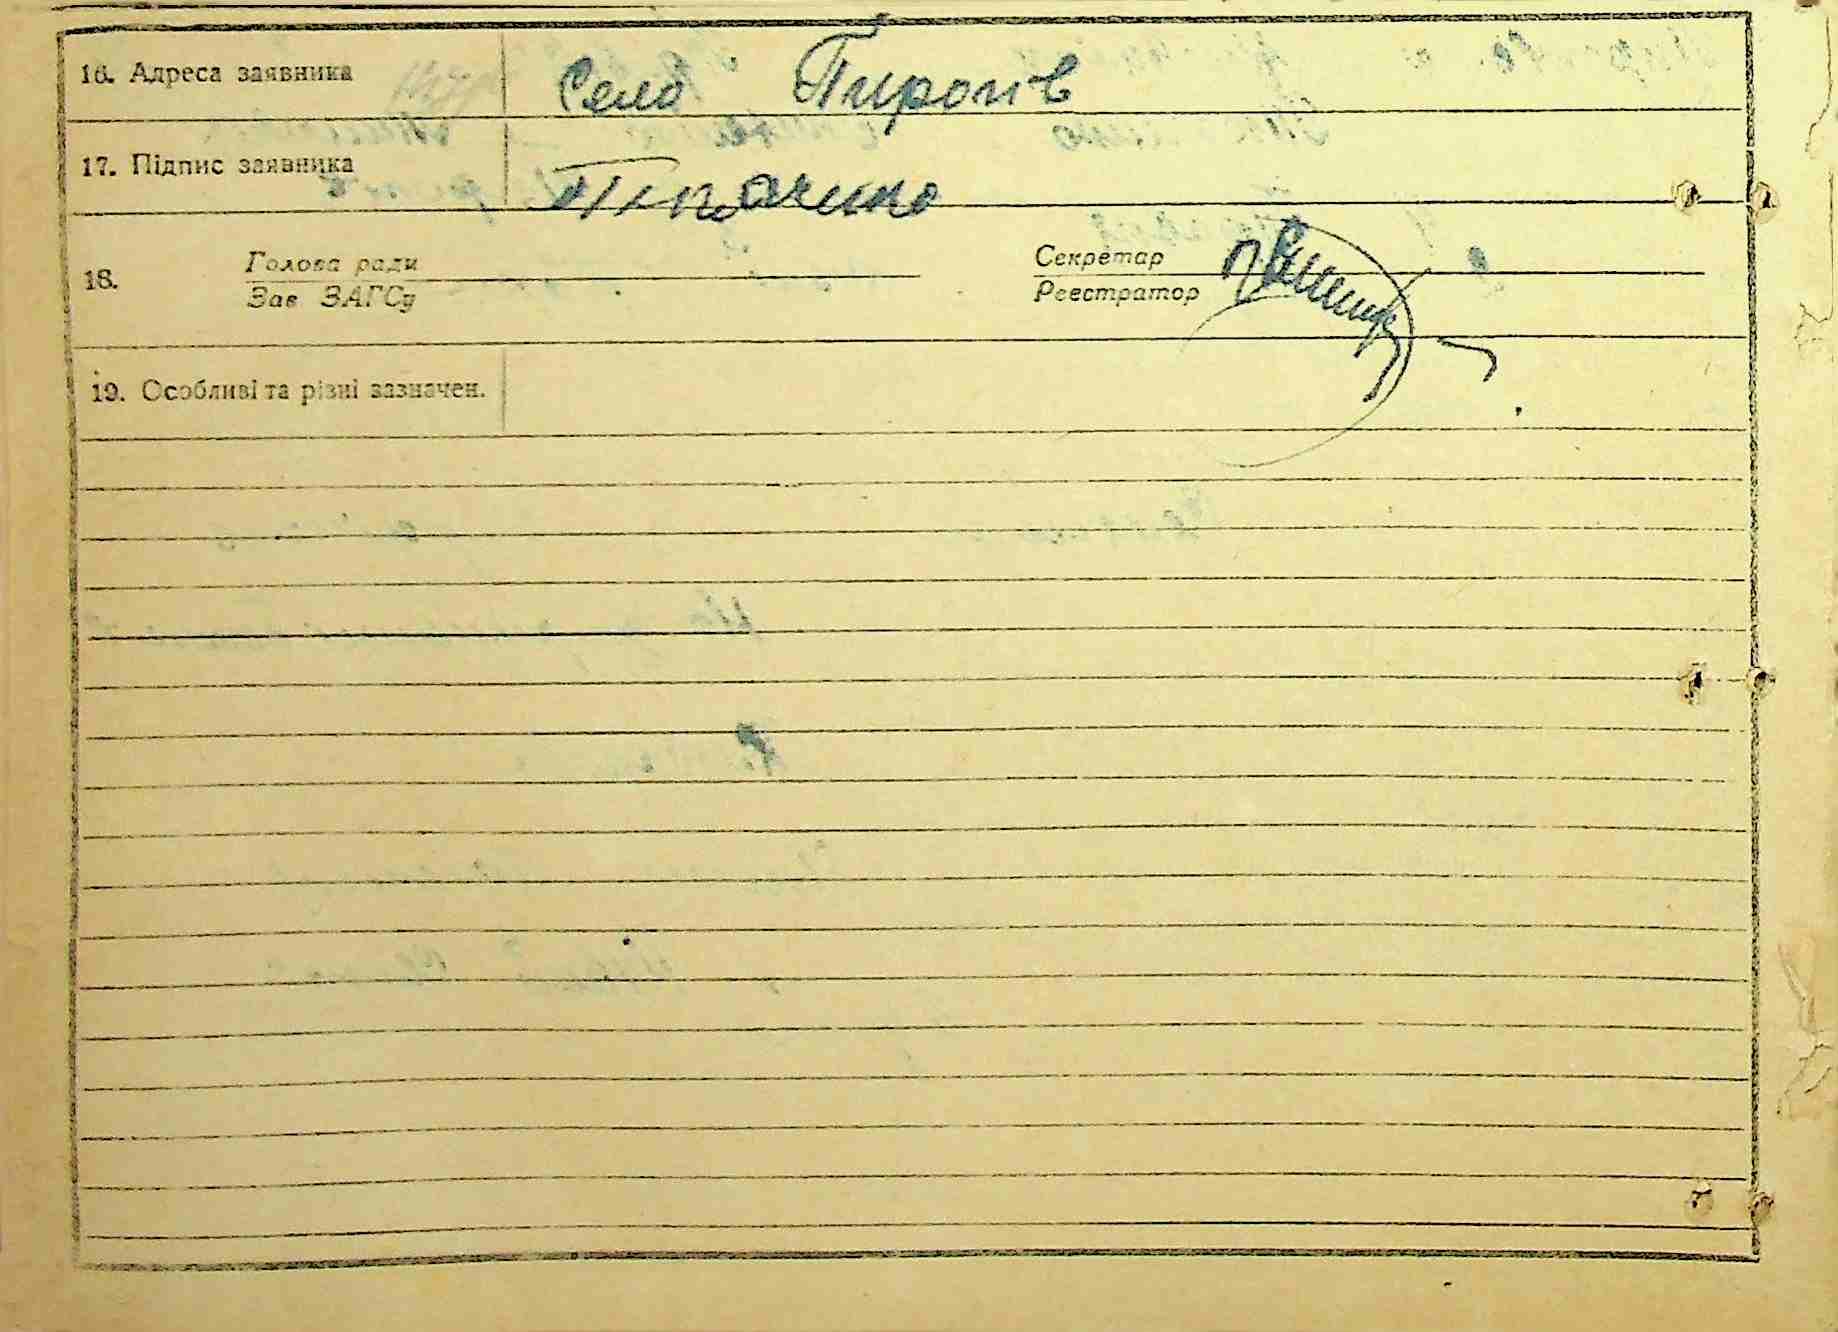 16. Адреса заявника Село Пирогів
17. Підпис заявника Ткаченко
18. Голова ради Секретар
Зав ЗАГСу Реєстратор
19. Особливі та різні зазначен.